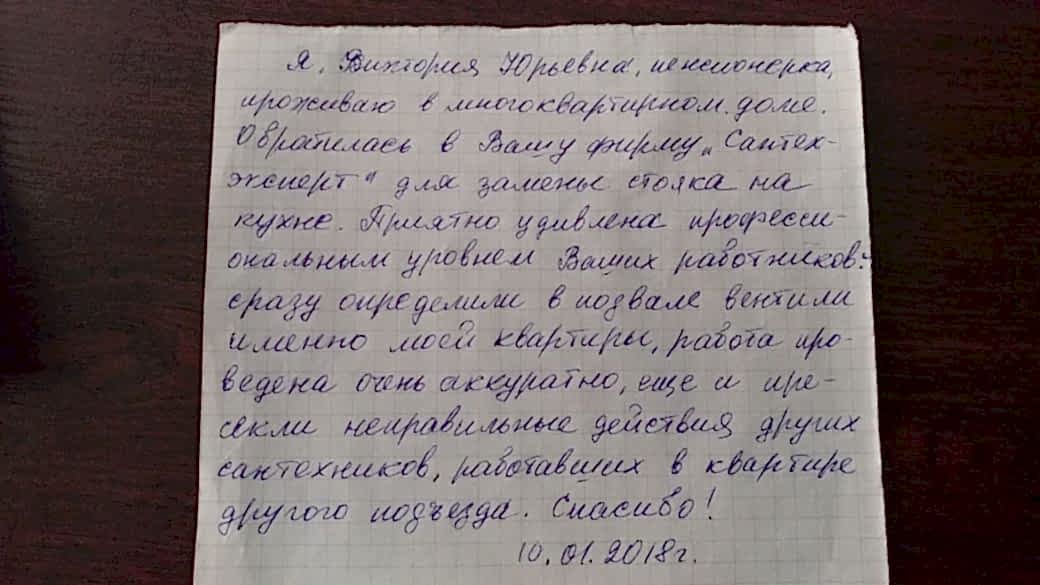 Я, Виктория Юрьевна, пенсионерка,
проживаю в многоквартирном доме.
Обратилась в Вашу фирму „Сантех-
эксперт" для замены стояка на
кухне. Приятно удивлена професси-
ональным уровнем Ваших работников:
сразу определили в подвале вентили
именно моей квартиры, работа про-
ведена очень аккуратно, еще и пре-
секли неправильные действия других
сантехников, работавших в квартире
другого подъезда. Спасибо!
10.01.2018г.